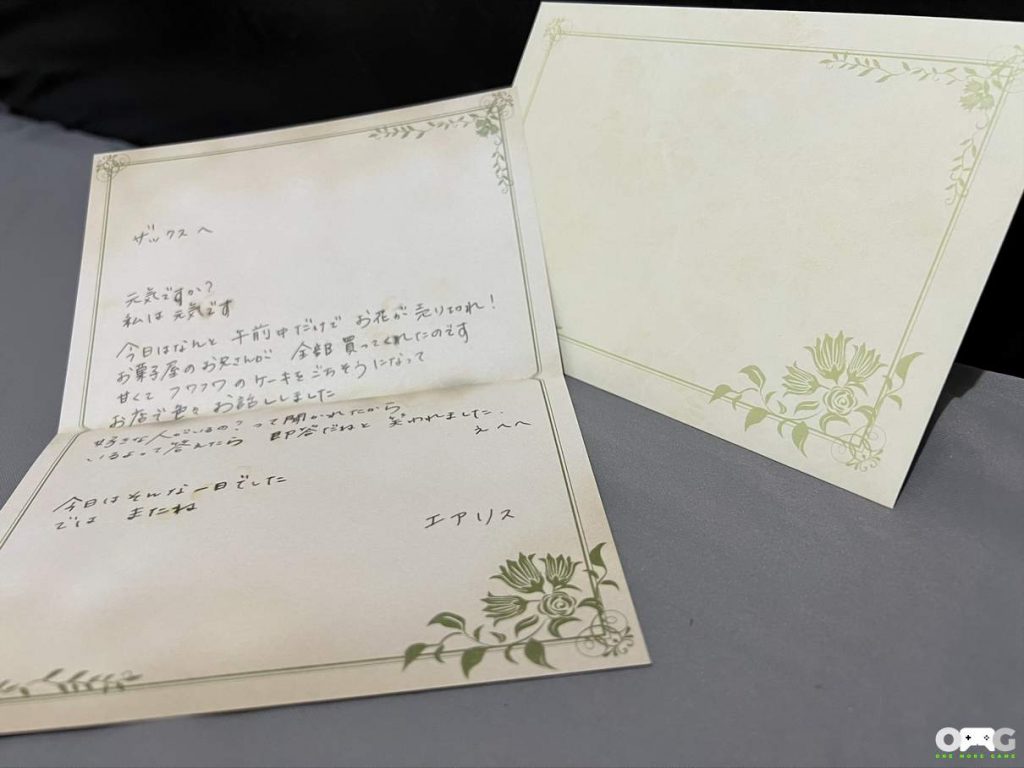 ザックスへ
元気ですか?
私は元気です
今日はなんと 午前中だけで お花が売り切れ!
お菓子屋のお兄さんが 全部買ってくれたのです
甘くて フワフワのケーキをごちそうになって
お店で色々 お話ししました
好きな人がいるの?って聞かれたから
いるよって答えたら 即答だねと 笑われました.
えへへ
今日はそんな一日でした
では またね
エアリス
OMG
ONE MORE GAME